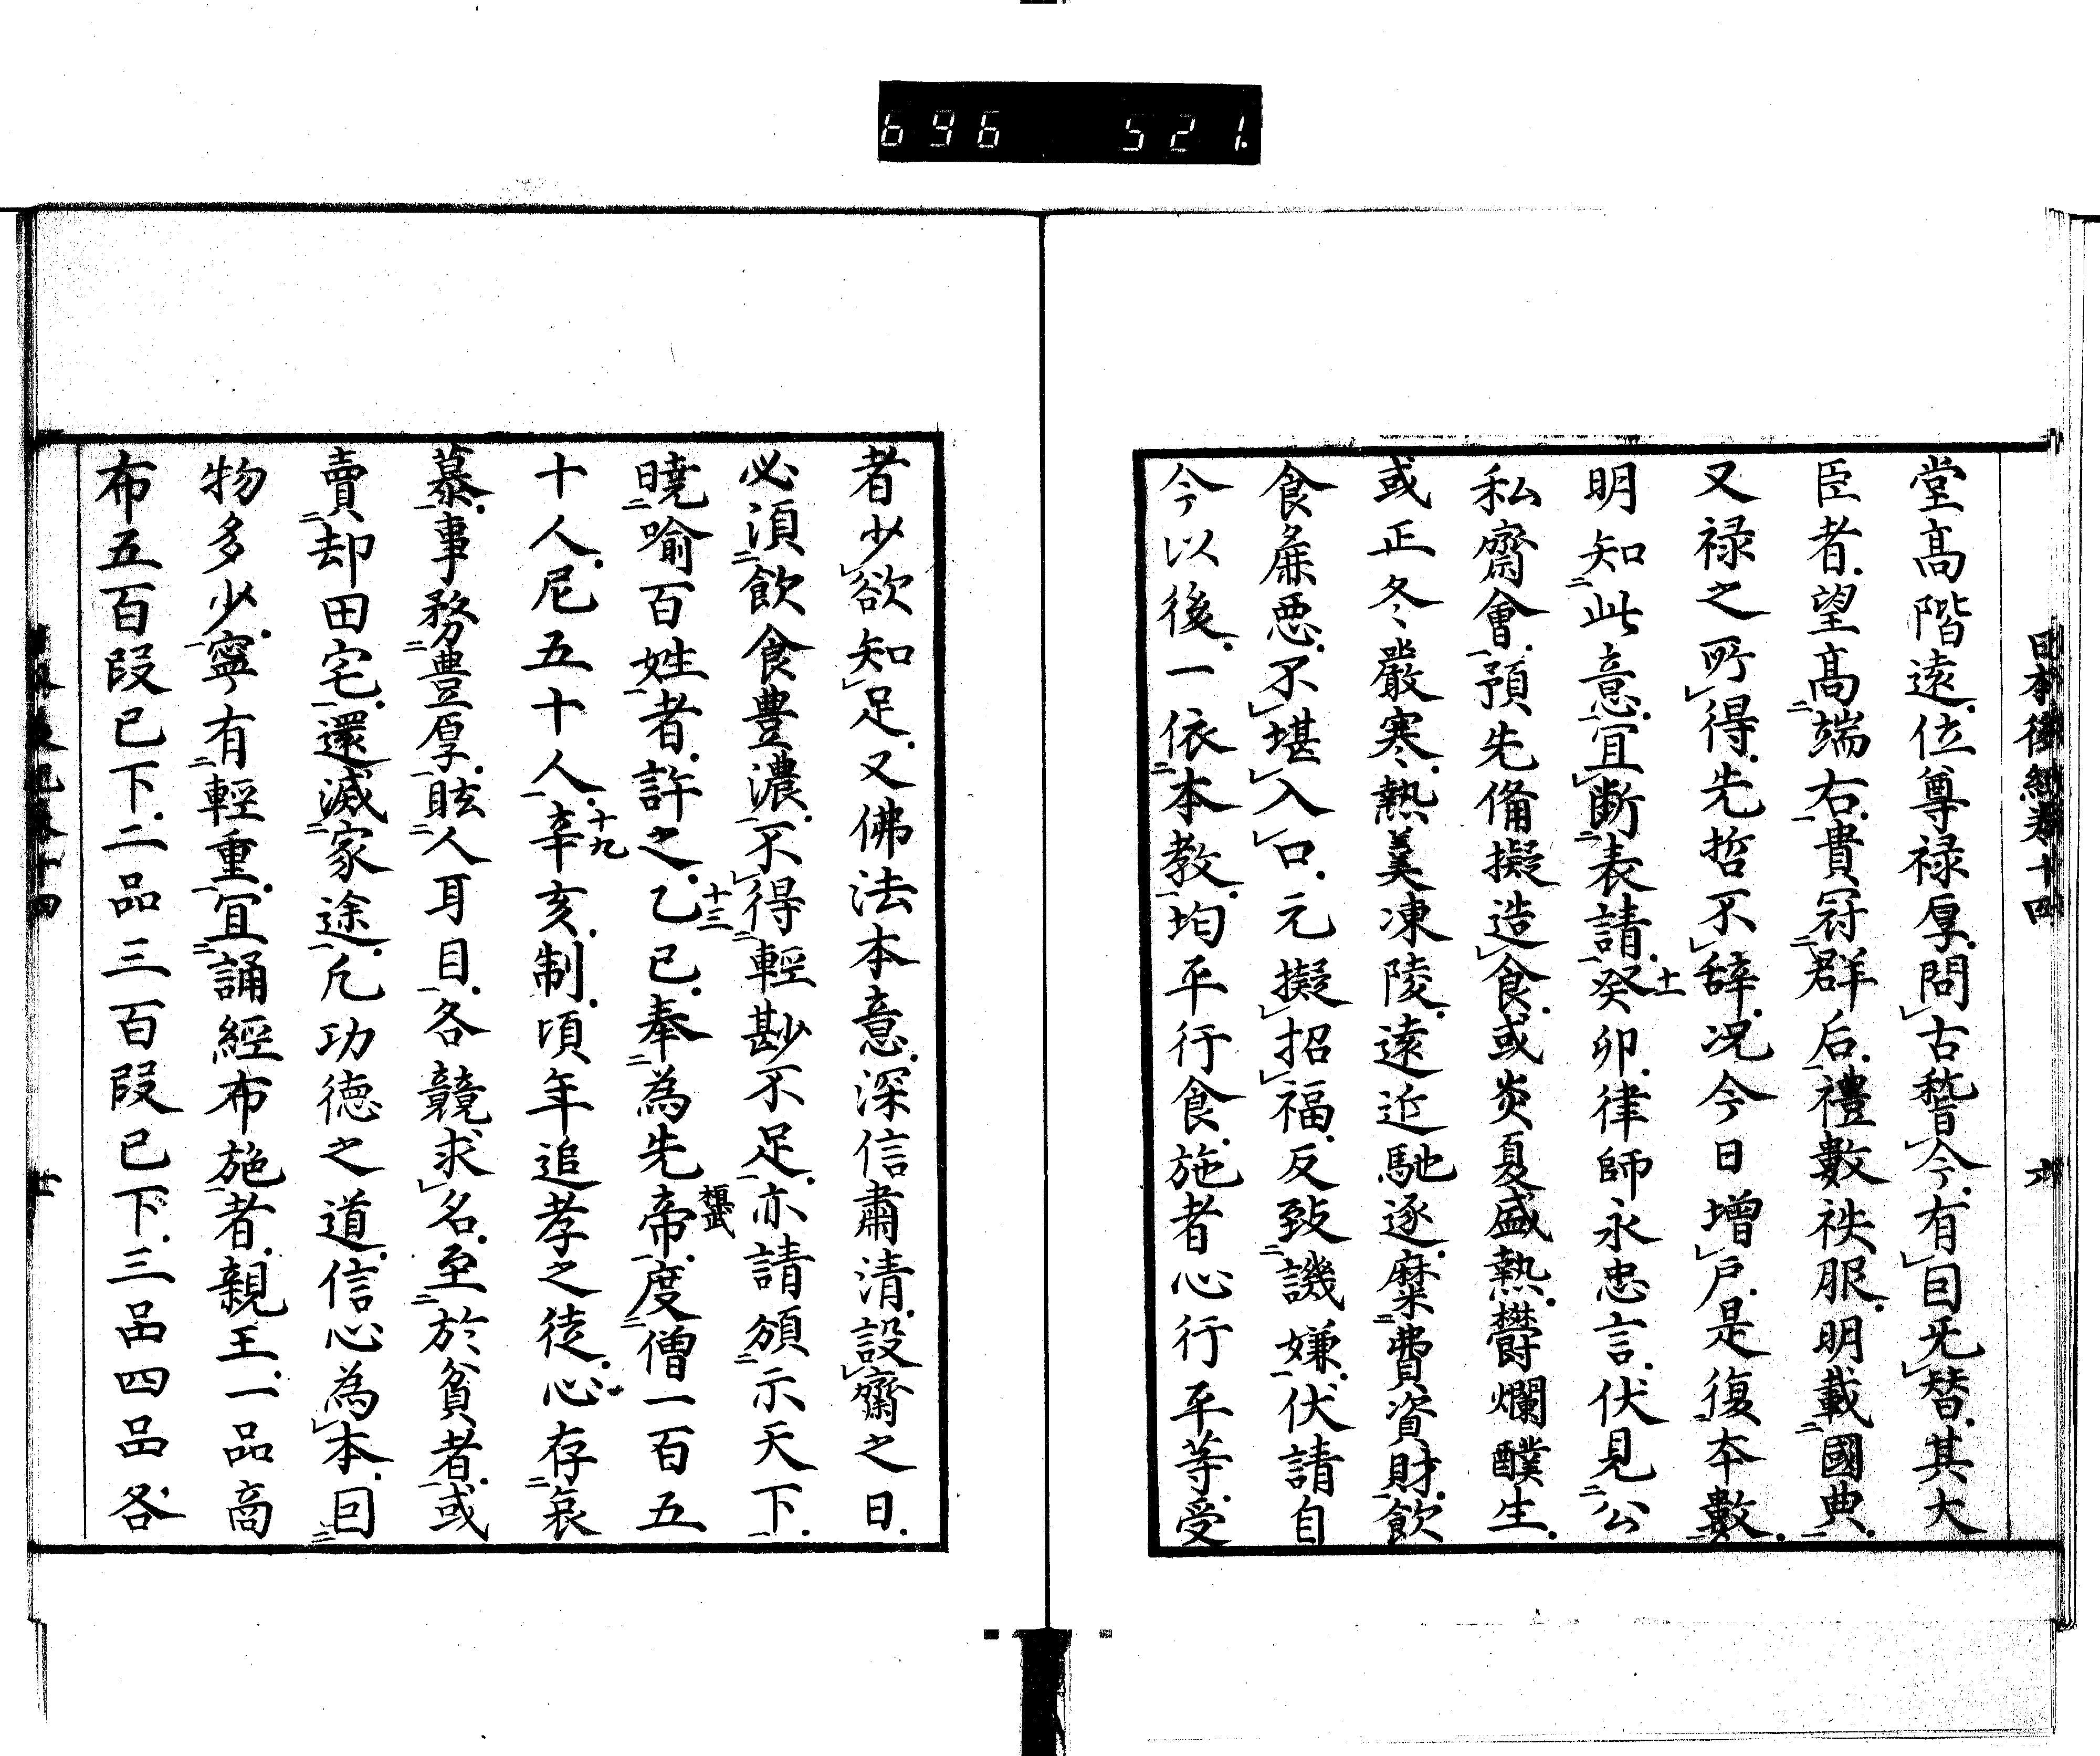 696 521.
日本後紀卷十四 六
堂髙階遠位尊禄厚問古稽今有因旡替其大
臣者望髙端右貴冠群后禮數袟服明載國典
又禄之所得先哲不辞况今日增戸是復本數
明知此意宜断表請癸卯律師永忠言伏見公
十一
私齋會預先備擬造食或炎夏盛熱欝爛醭生
或正冬嚴寒熱羹凍陵遠近馳逐糜費資財飲
食麁悪不堪入口元擬招福反致譏嫌伏請自
今以後一依本教均平行食施者心行平等受
者少欲知足又佛法本意深信肅清設齋之日
必湏飲食豊濃不得輕尠不足亦請頒示天下
曉喻百姓者許之乙巳奉為先帝度僧一百五
十三
桓武
十人尼五十人辛亥制頃年追孝之徒心存哀
十九
慕事務豊厚眩人耳目各競求名至於貧者或
賣却田宅還滅家途凢功徳之道信心為本因
物多少寧有輕重宜誦經布施者親王一品商
布五百段已下二品三百段已下三品四品各